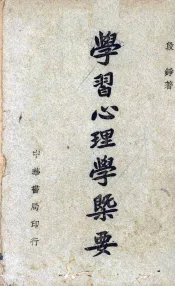 段錚著
學習心理學槩要
中華書局印行